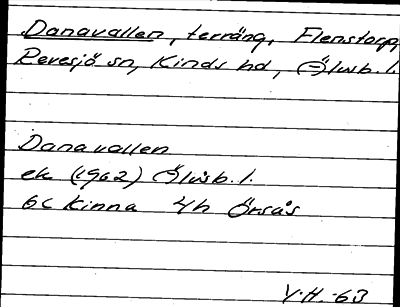 Danavallen, terräng, Flenstorp,
Revesjö sn, Kinds hd, Älvsb. l.
Danavallen
ek (1962) Älvsb. l.
6c Kinna 4h Örsås
V.H. -63